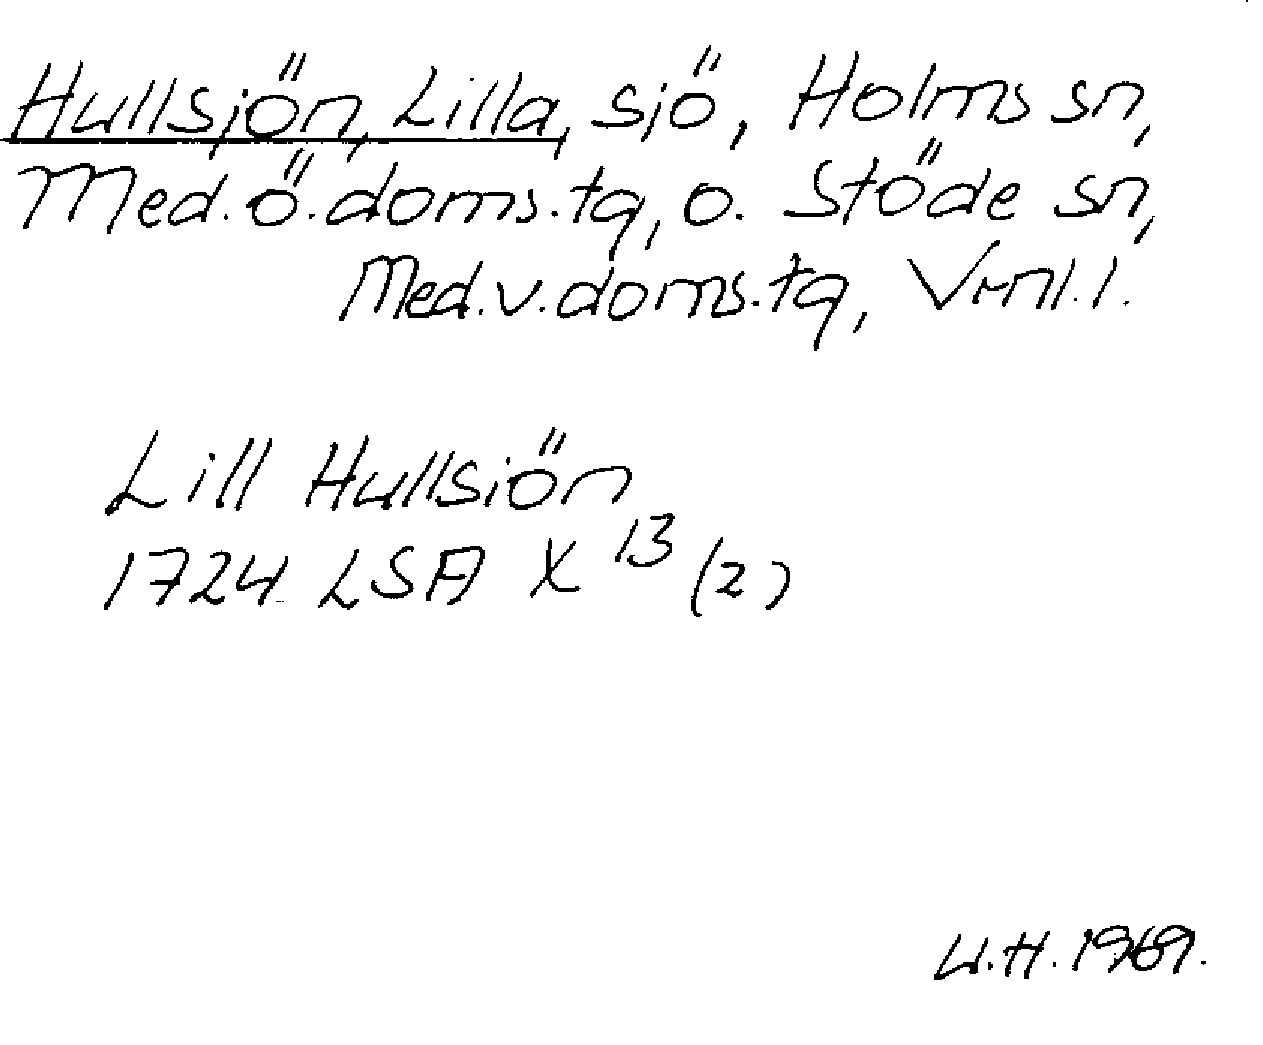 Hullsjön, Lilla, sjö, Holms sn,
Med. ö. doms. tg, o. Stöde sn,
Med. v. doms. tg, Vrnl. l.
Lill Hullsiön
1724 LSA X 13 (2)
U.H. 1969.